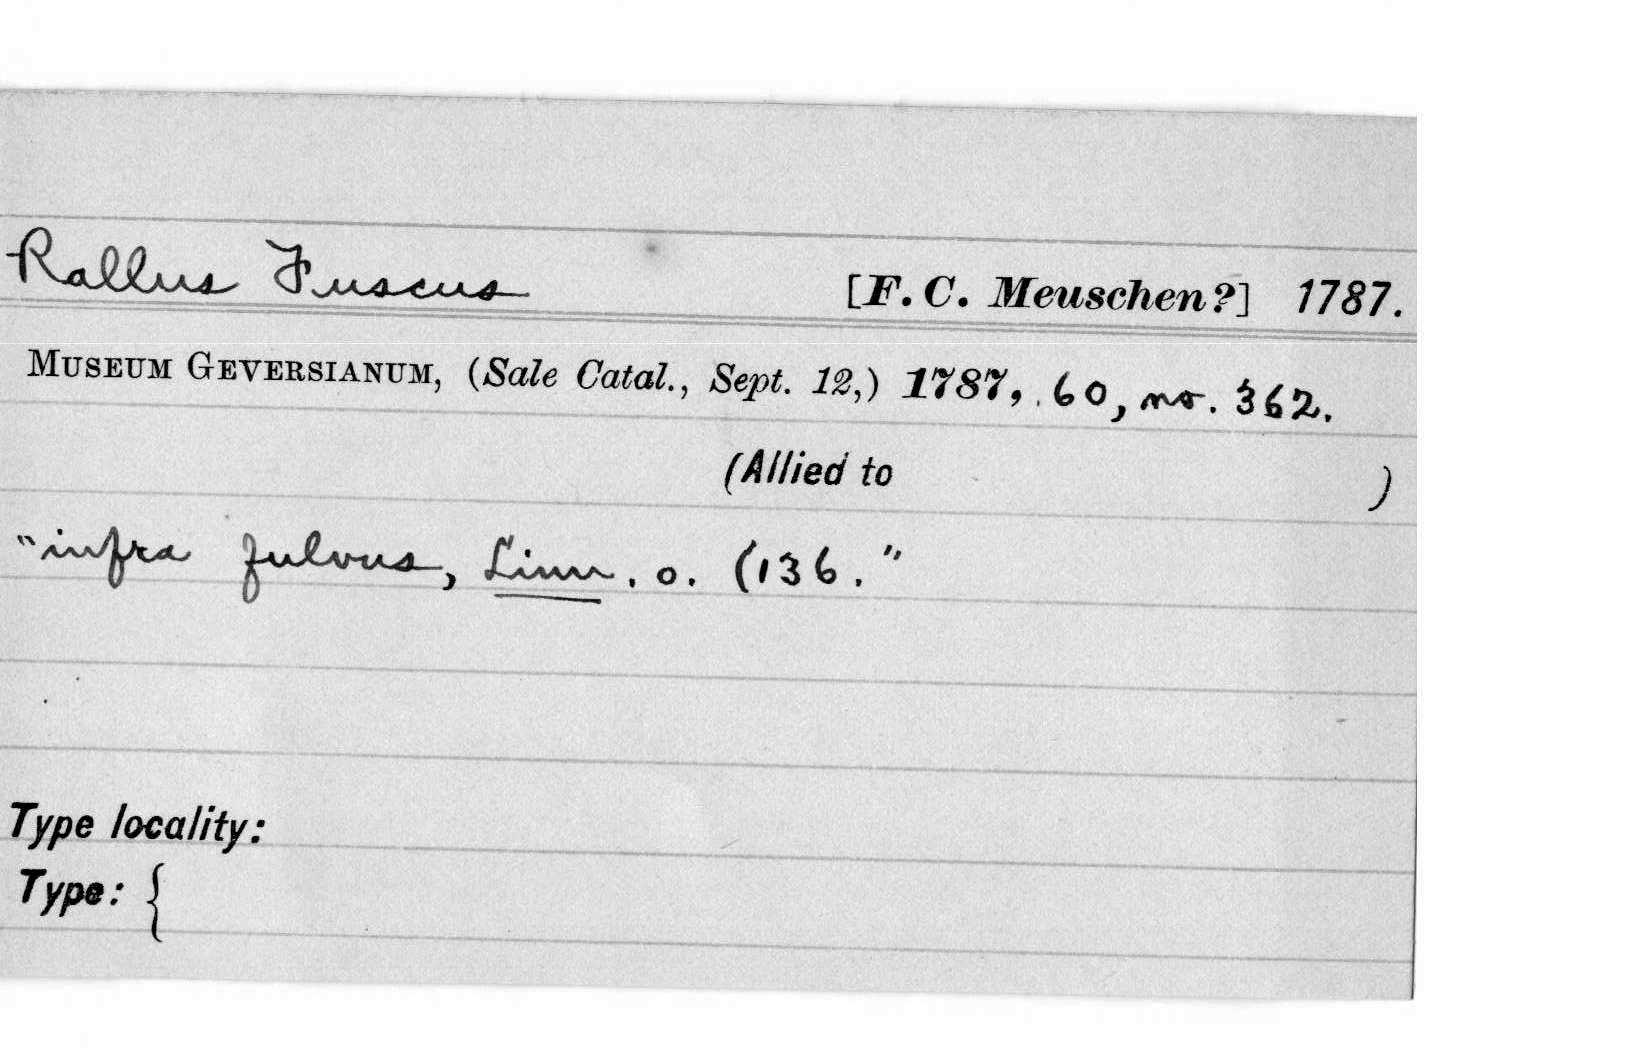 Rallus Fuscus [F. C. Meuschen?] 1787.
MUSEUM GEVERSIANUM, (Sale Catal., Sept. 12,) 1787, 60, no. 362.
(Allied to )
"infra fulvus, Linn. o. (136."
Type locality:
Type: {